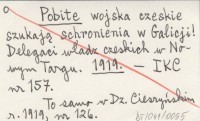 o Pobite wojska czeskie
szukają schronienia w Galicji!
Delegaci władz czeskich w No-
wym Targu. 1919. — IKC
nr 157.
To samo w Dz. Cieszyńskim
r. 1919, nr 126.